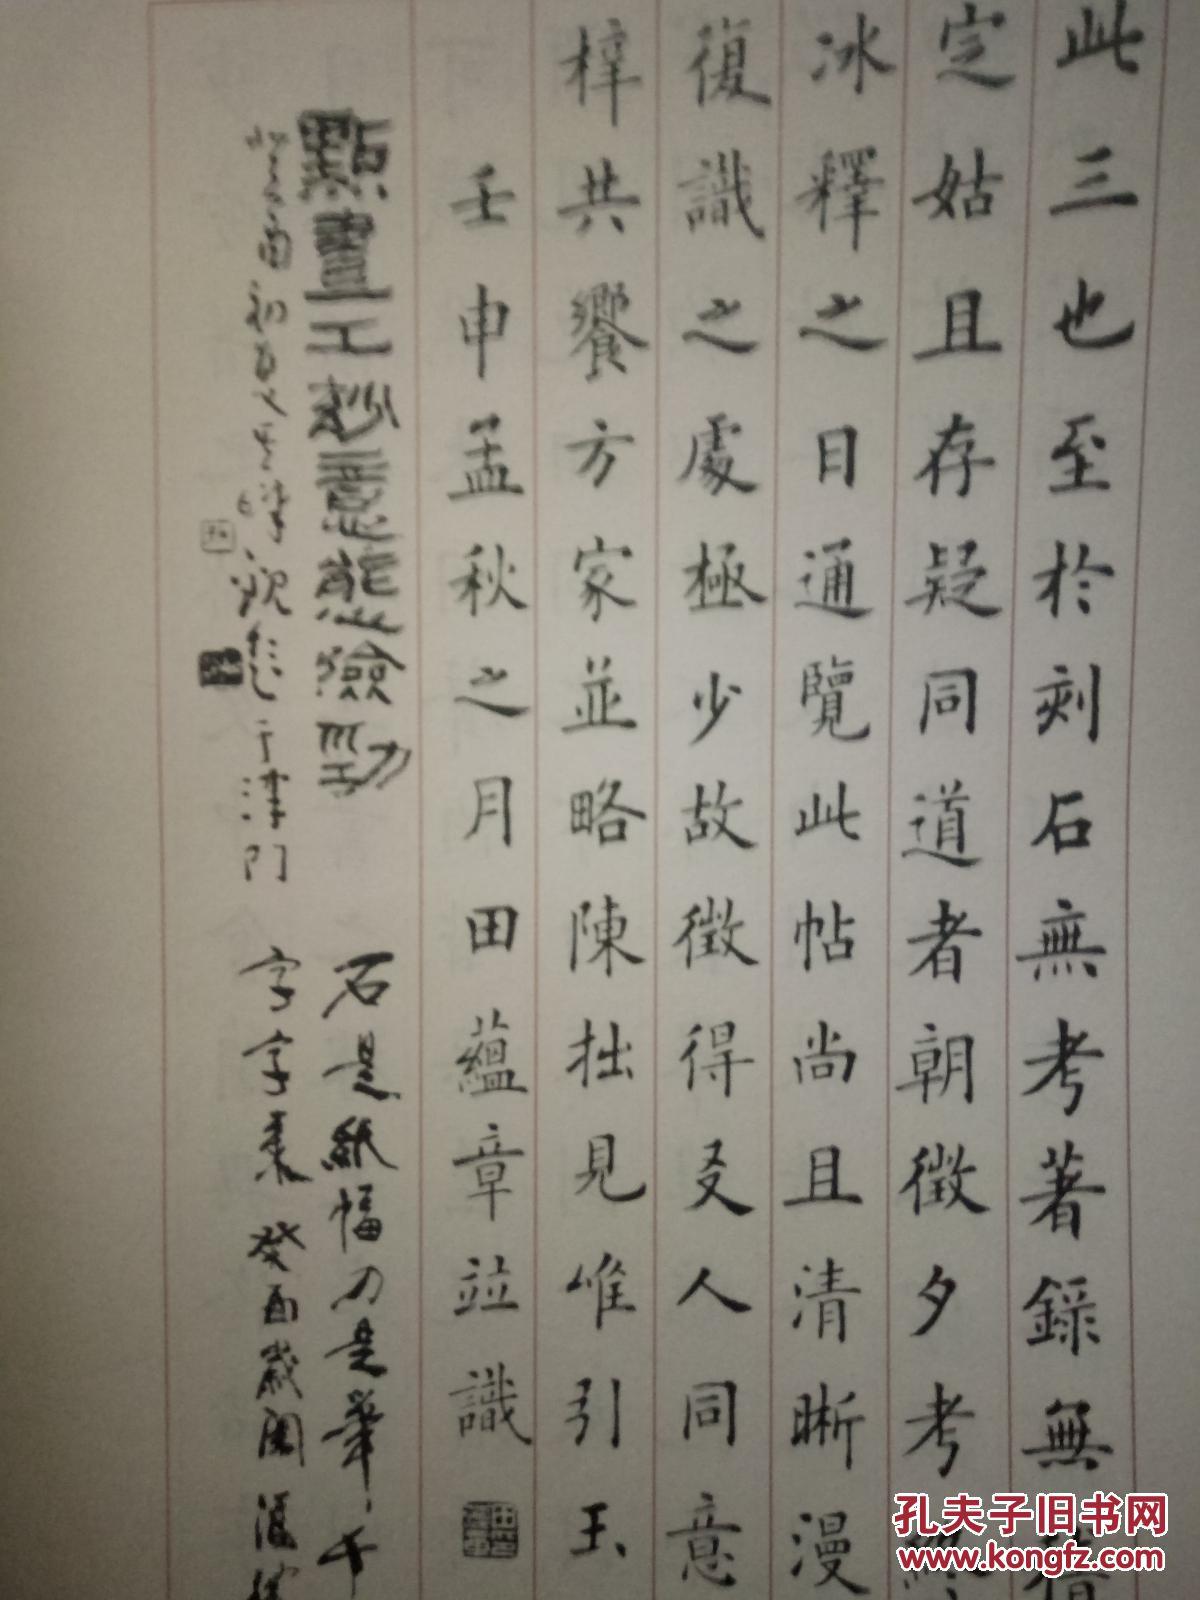 此三也至於刻石無考著錄無
定姑且存疑同道者朝徵夕考
冰釋之日通覽此帖尚且清晰漫
復識之處極少故徵得友人同意
梓共饗方家並略陳拙見唯引玉
壬申孟秋之月田蘊章並識
點畫工妙意態險勁
癸酉初夏 觀題于津門
石是紙幅刀是筆千
字字秉 癸酉歲闌
孔夫子旧书网
www.kongfz.com